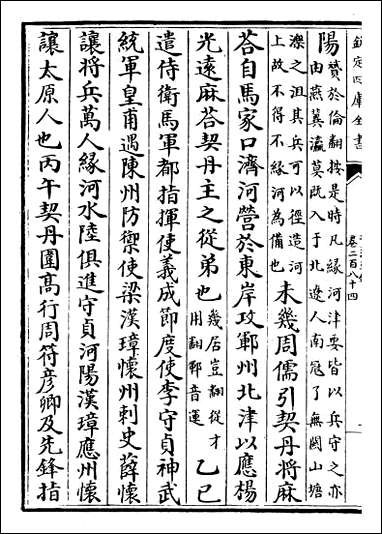 欽定四庫全書
卷二百八十四
陽贊於倫翻按是時凡緣河津要皆以兵守之亦
由燕冀瀛莫既入于北遼人南寇了無關山塘
濼之沮其兵可以徑造河
上故不得不緣河為備也
未幾周儒引契丹將麻
荅自馬家口濟河營於東岸攻鄆州北津以應楊
光遠麻荅契丹主之從弟也幾居豈翻從才
用翻鄆音運
乙已
遣侍衛馬軍都指揮使義成節度使李守貞神武
統軍皇甫遇陳州防禦使梁漢璋懷州刺史薛懷
讓將兵萬人緣河水陸俱進守貞河陽漢璋應州懷
讓太原人也丙午契丹圍高行周符彦卿及先鋒指